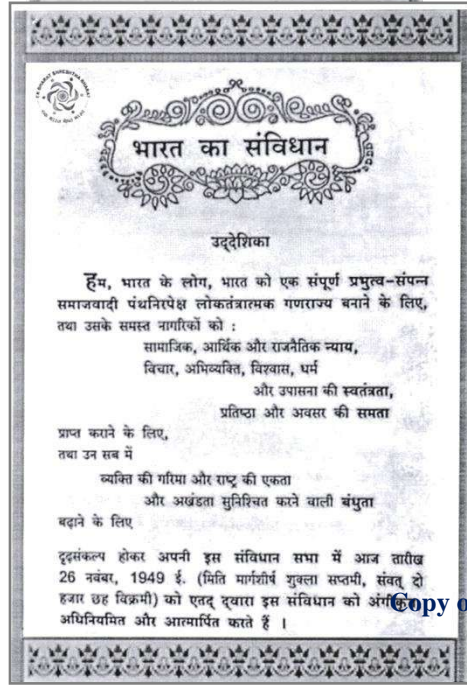 EK BHARAT SHRESHTHA BHARAT
भारत का संविधान
उद्देशिका
हम, भारत के लोग, भारत को एक संपूर्ण प्रभुत्व-संपन्न
समाजवादी पंथनिरपेक्ष लोकतंत्रात्मक गणराज्य बनाने के लिए,
तथा उसके समस्त नागरिकों को :
सामाजिक, आर्थिक और राजनैतिक न्याय,
विचार, अभिव्यक्ति, विश्वास, धर्म
और उपासना की स्वतंत्रता,
प्रतिष्ठा और अवसर की समता
प्राप्त कराने के लिए,
तथा उन सब में
व्यक्ति की गरिमा और राष्ट्र की एकता
और अखंडता सुनिश्चित करने वाली बंधुता
बढ़ाने के लिए
दृढ़संकल्प होकर अपनी इस संविधान सभा में आज तारीख
26 नवंबर, 1949 ई. (मिति मार्गशीर्ष शुक्ला सप्तमी, संवत् दो
हजार छह विक्रमी) को एतद् द्वारा इस संविधान को अंगीकृत,
अधिनियमित और आत्मार्पित करते हैं ।
Copy o